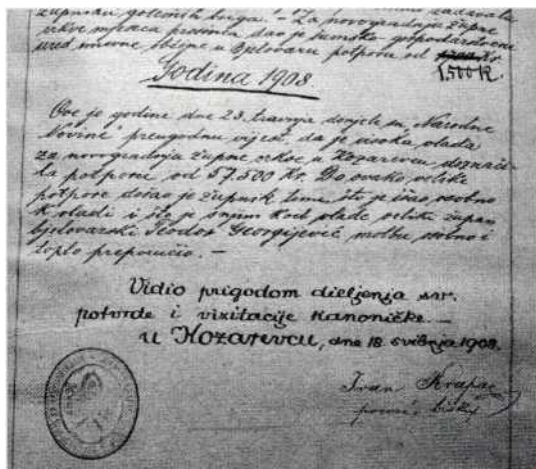 župniku golemih briga. – Za novogradnju župne
crkve mjeseca prosinca dao je šumsko-gospodarstveni
ured imovne obćine u Bjelovaru potporu od Kr.
1.500 K.
Godina 1908.
Ove je godine dne 23. travnja donijele su „Narodne
Novine" preugodnu vijest, da je visoka vlada
za novogradnju župne crkve u Kozarevcu doznači-
la potporu od 57.500 Kr. Do ovako velike
potpore došao je župnik time, što je išao osobno
k vladi i što je snjim kod vlade veliki župan
bjelovarski Teodor Georgijević molbu osobno i
toplo preporučio. –
Vidio prigodom dieljenja sv.
potvrde i vizitacije kanoničke –
u Kozarevcu, dne 18. svibnja 1908.
Ivan Krapac
biskup